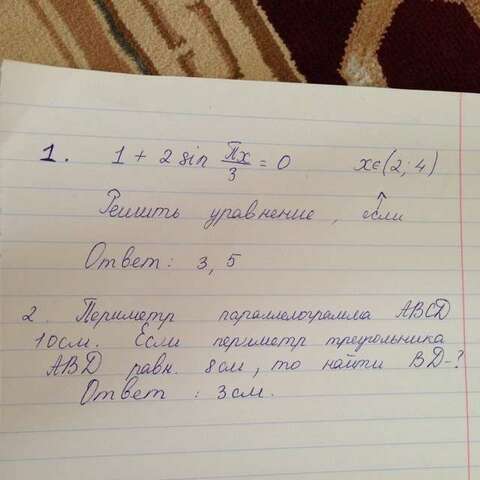 1. 1 + 2 sin πx/3 = 0 x∈(2; 4)
Решить уравнение, если
Ответ: 3,5
2. Периметр параллелограмма ABCD
10см. Если периметр треугольника
ABD равн. 8см, то найти BD-?
Ответ: 3см.